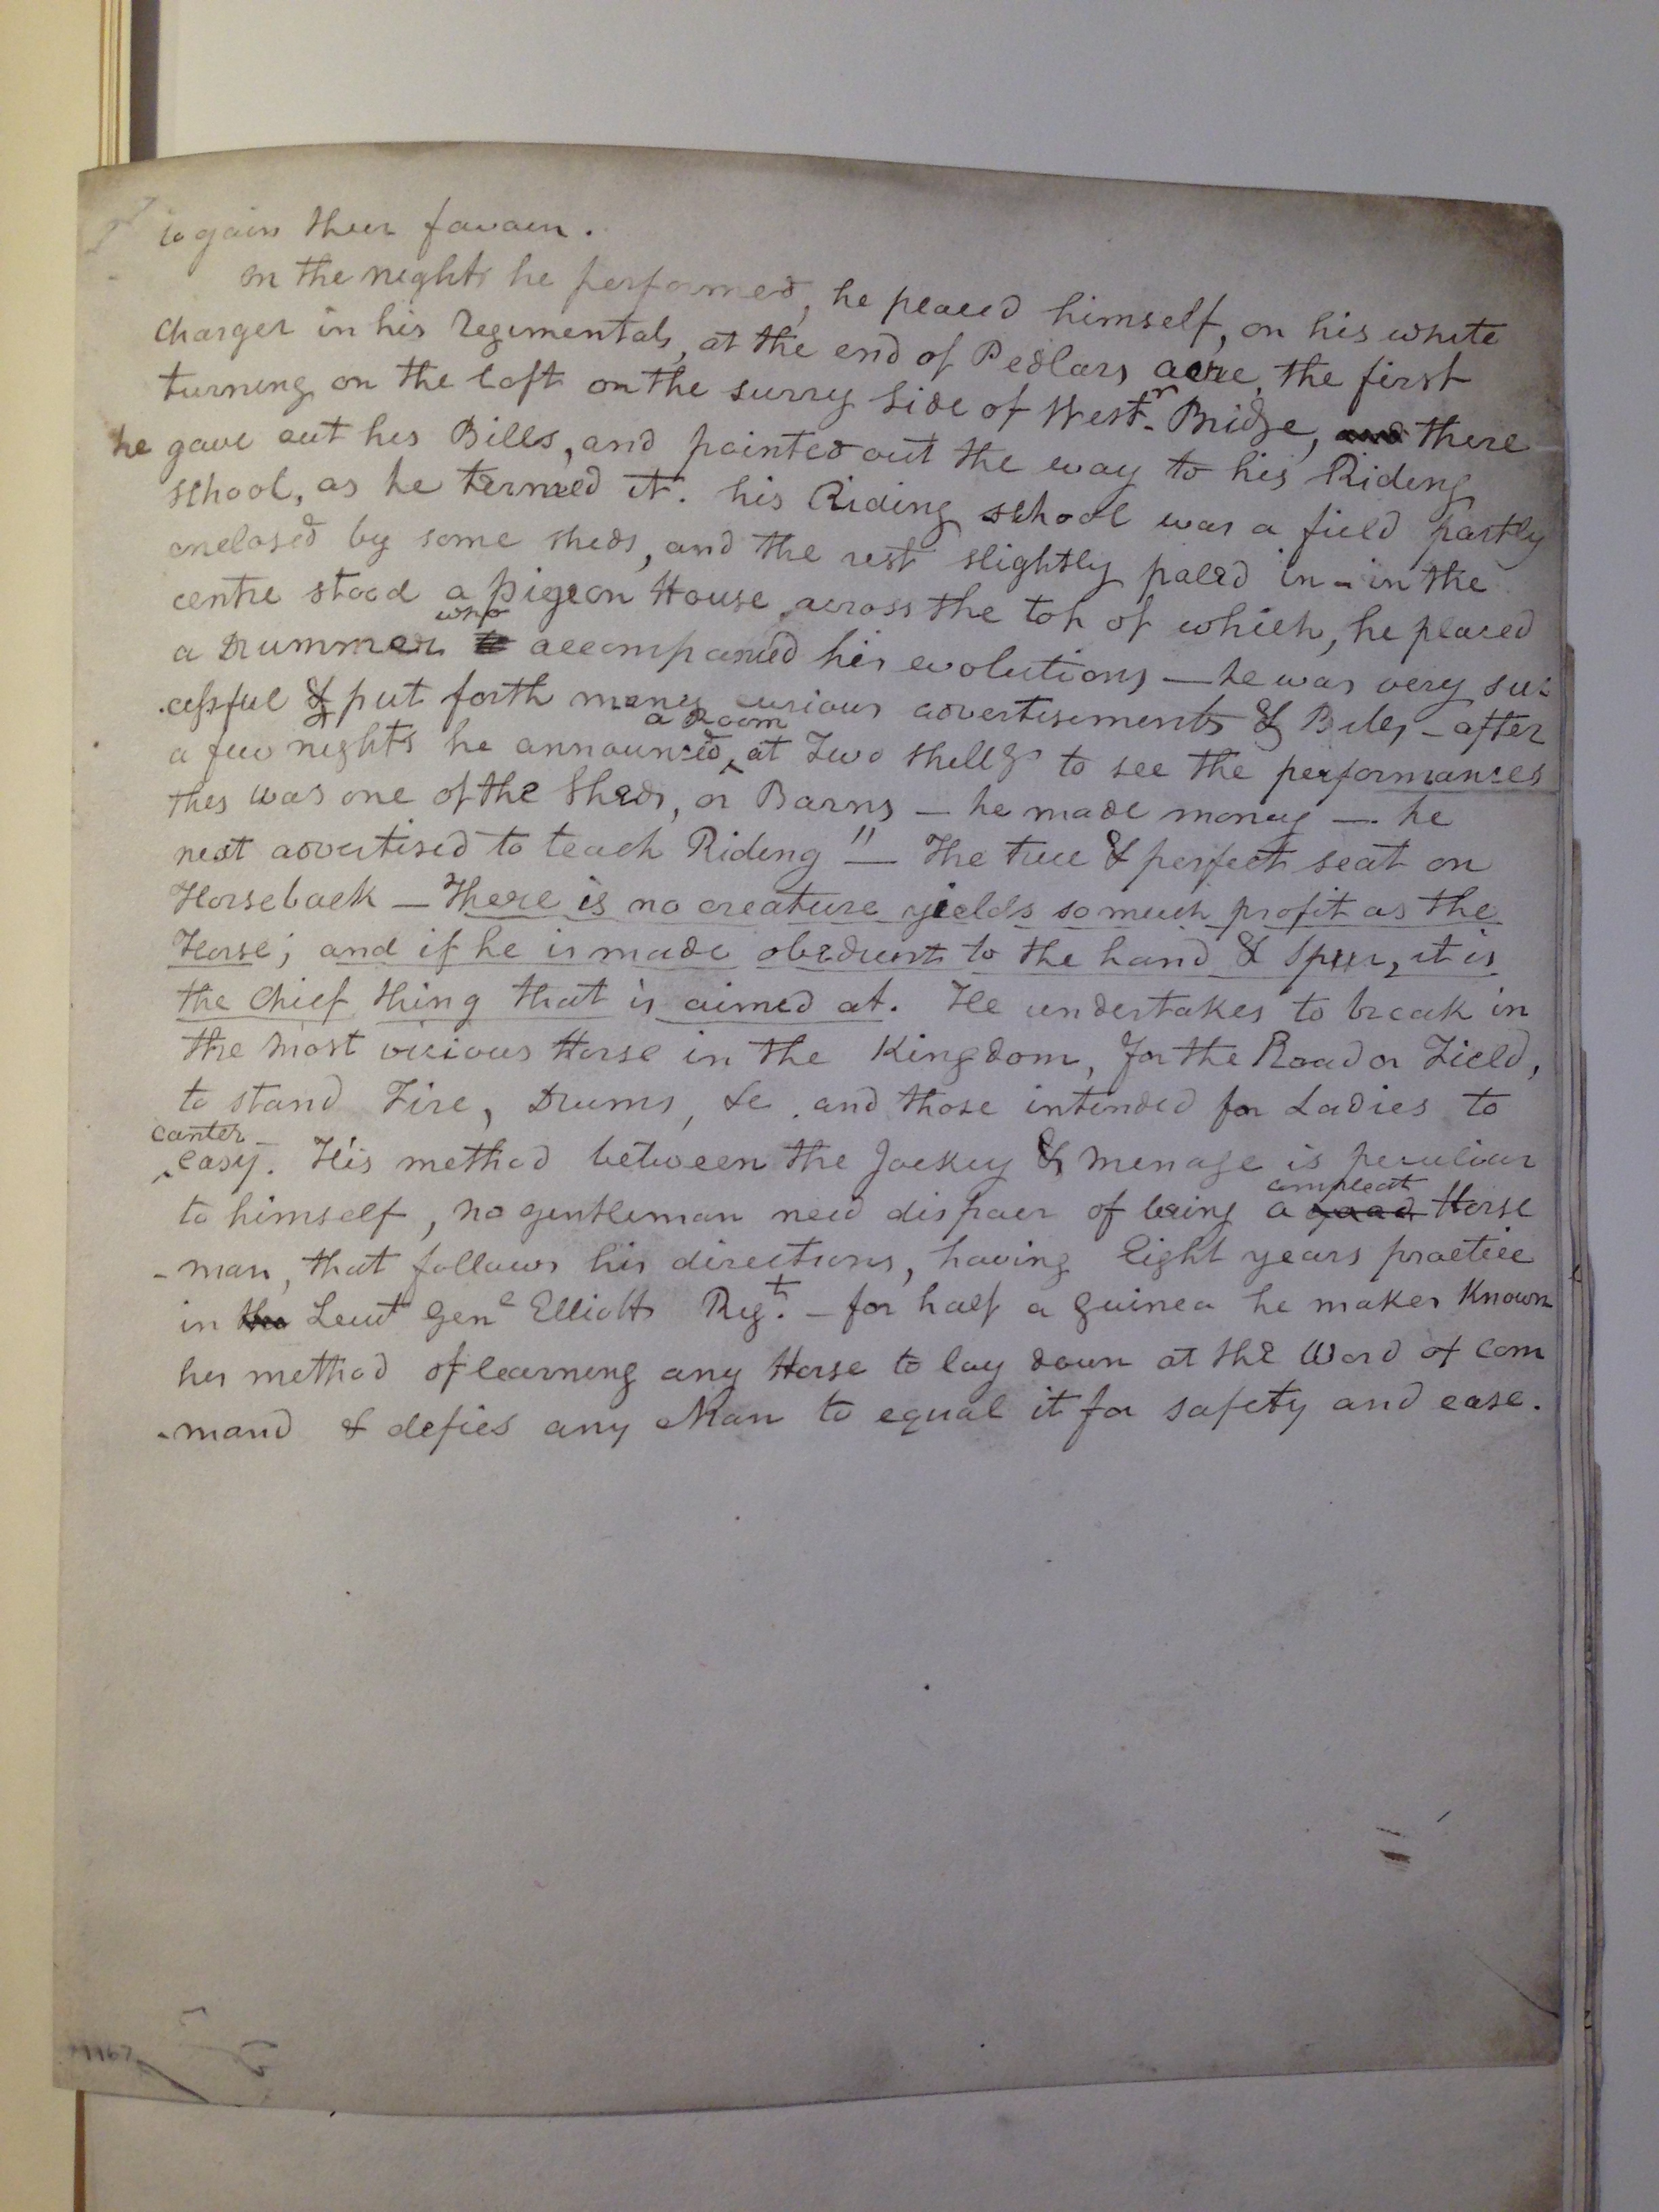 to gain their favour.
on the nights he performed, he placed himself, on his white
Charger in his Regimentals, at the end of Pedlars acre, the first
turning on the left on the surry side of Westr. Bridge, and there
he gave out his Bills, and pointed out the way to his Riding
school, as he termed it. his Riding school was a field partly
enclosed by some sheds, and the rest slightly paled in - in the
centre stood a pigeon House, across the top of which, he placed
a Drummer who accompanied his evolutions — he was very suc-
-cessful & put forth many curious advertisements & Bills - after
a few nights he announced, a Room at Two shillgs to see the performances
this was one of the Sheds, or Barns — he made money — he
next advertised to teach Riding "— The true & perfect seat on
Horseback — There is no creature yields so much profit as the
Horse; and if he is made obedient to the hand & spur, it is
the Chief thing that is aimed at. He undertakes to break in
the most vicious Horse in the Kingdom, for the Road or Field,
to stand Fire, Drums, &c. and those intended for Ladies to
canter easy. His method between the Jockey & Menage is peculiar
to himself, no gentleman need dispair of being a good compleat Horse
-man, that follows his directions, having Eight years practice
in the Leut Genl Elliotts Regt. - for half a guinea he makes Known
his method of learning any Horse to lay down at the Word of Com
-mand & defies any Man to equal it for safety and ease.